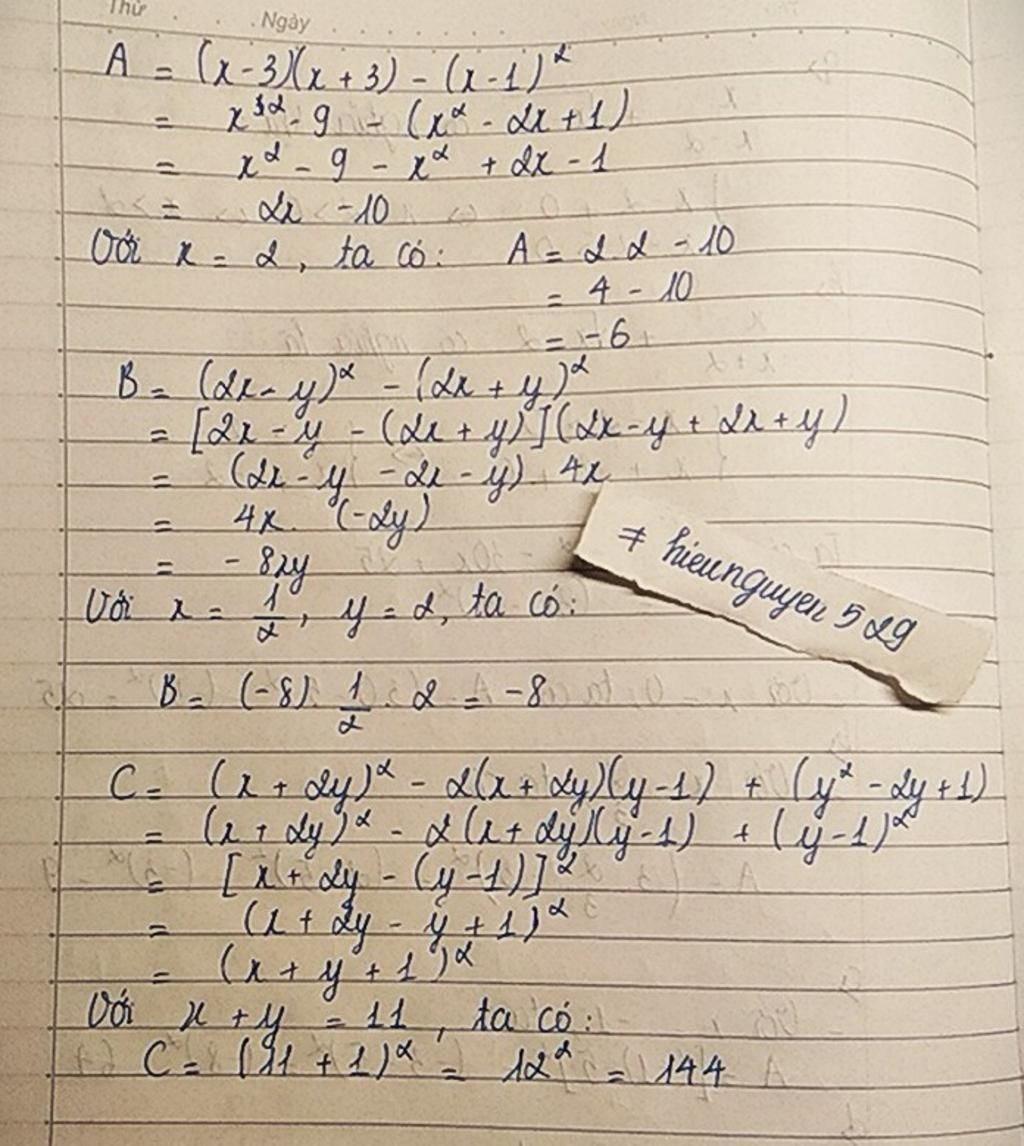 Thứ
Ngày
A = (x-3)(x+3) - (x-1)²
= x² - 9 - (x² - 2x + 1)
= x² - 9 - x² + 2x - 1
= 2x - 10
Với x = 2, ta có: A = 2.2 - 10
= 4 - 10
= -6
B = (2x - y)² - (2x + y)²
= [2x - y - (2x + y)](2x - y + 2x + y)
= (2x - y - 2x - y). 4x
= 4x. (-2y)
= -8xy
≠ hieunguyen 529
Với x = 1/2, y = 2, ta có:
B = (-8). 1/2 . 2 = -8
C = (x + 2y)² - 2(x + 2y)(y - 1) + (y² - 2y + 1)
= (x + 2y)² - 2(x + 2y)(y - 1) + (y - 1)²
= [x + 2y - (y - 1)]²
= (x + 2y - y + 1)²
= (x + y + 1)²
Với x + y = 11, ta có:
C = (11 + 1)² = 12² = 144